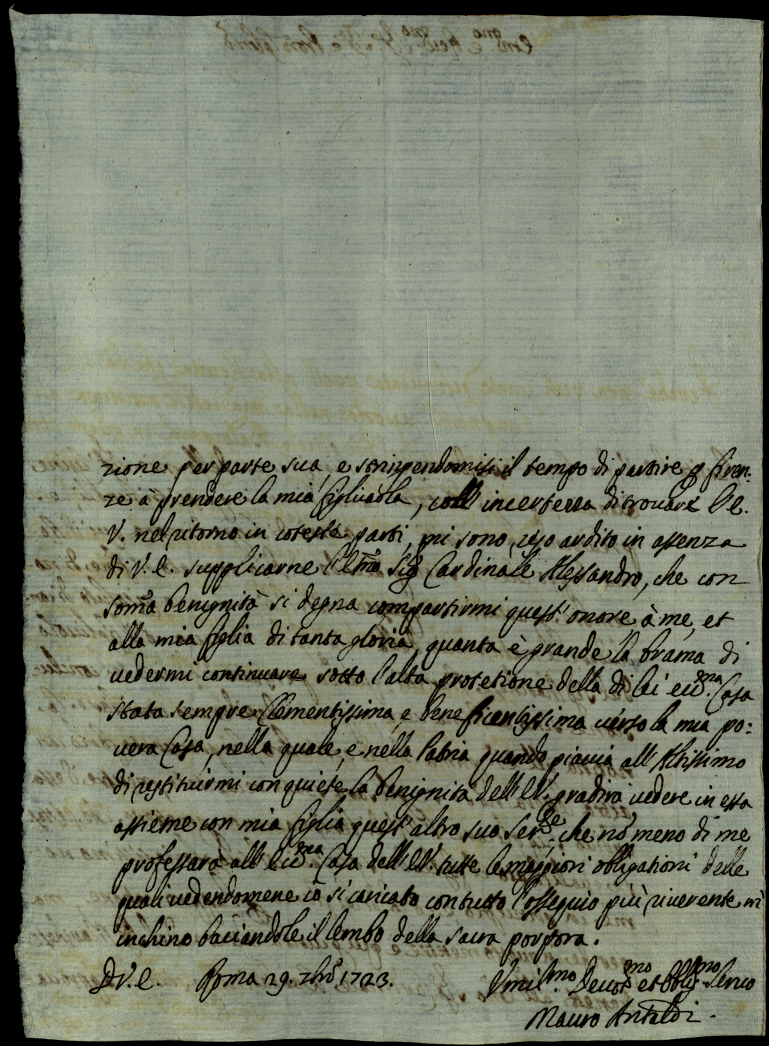 zione per parte sua, e stringendomisi il tempo di partire p Firen:
ze à prendere la mia figliuola, coll' incertezza di trovare V.E.
V. nel ritorno in coteste parti, mi sono reso ardito in assenza
di V. E. supplicarne l'Emo Sig Cardinale Alessandro, che con
soma benignità si degna compartirmi quest' onore à me, et
alla mia figlia di tanta gloria, quanta è grande la brama di
vedermi continuare sotto l'alta protetione della di lei ecc.ma Casa
stata sempre Clementissima, e beneficentissima verso la mia po:
vera Casa, nella quale, e nella Patria quando piacia all' Altissimo
di restituirmi con quiete la benignità dell' E.V. gradirà vedere in essa
assieme con mia figlia quest' altro suo Ser.re, che nõ meno di me
professarà all' Ecc.ma Casa dell' E.V. tutte le maggiori obligationi delle
quali vedendomene io si caricato con tutto l'ossequio più riverente m'
inchino baciandole il lembo della sacra porpora.
D V. E. Roma 29. 7bre 1723.
Umil.mo Devot.mo et Oblig.mo Servo
Mauro Antaldi.